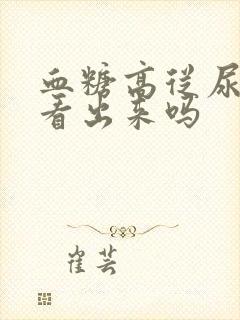 血糖高从尿
看出来吗
崔芸